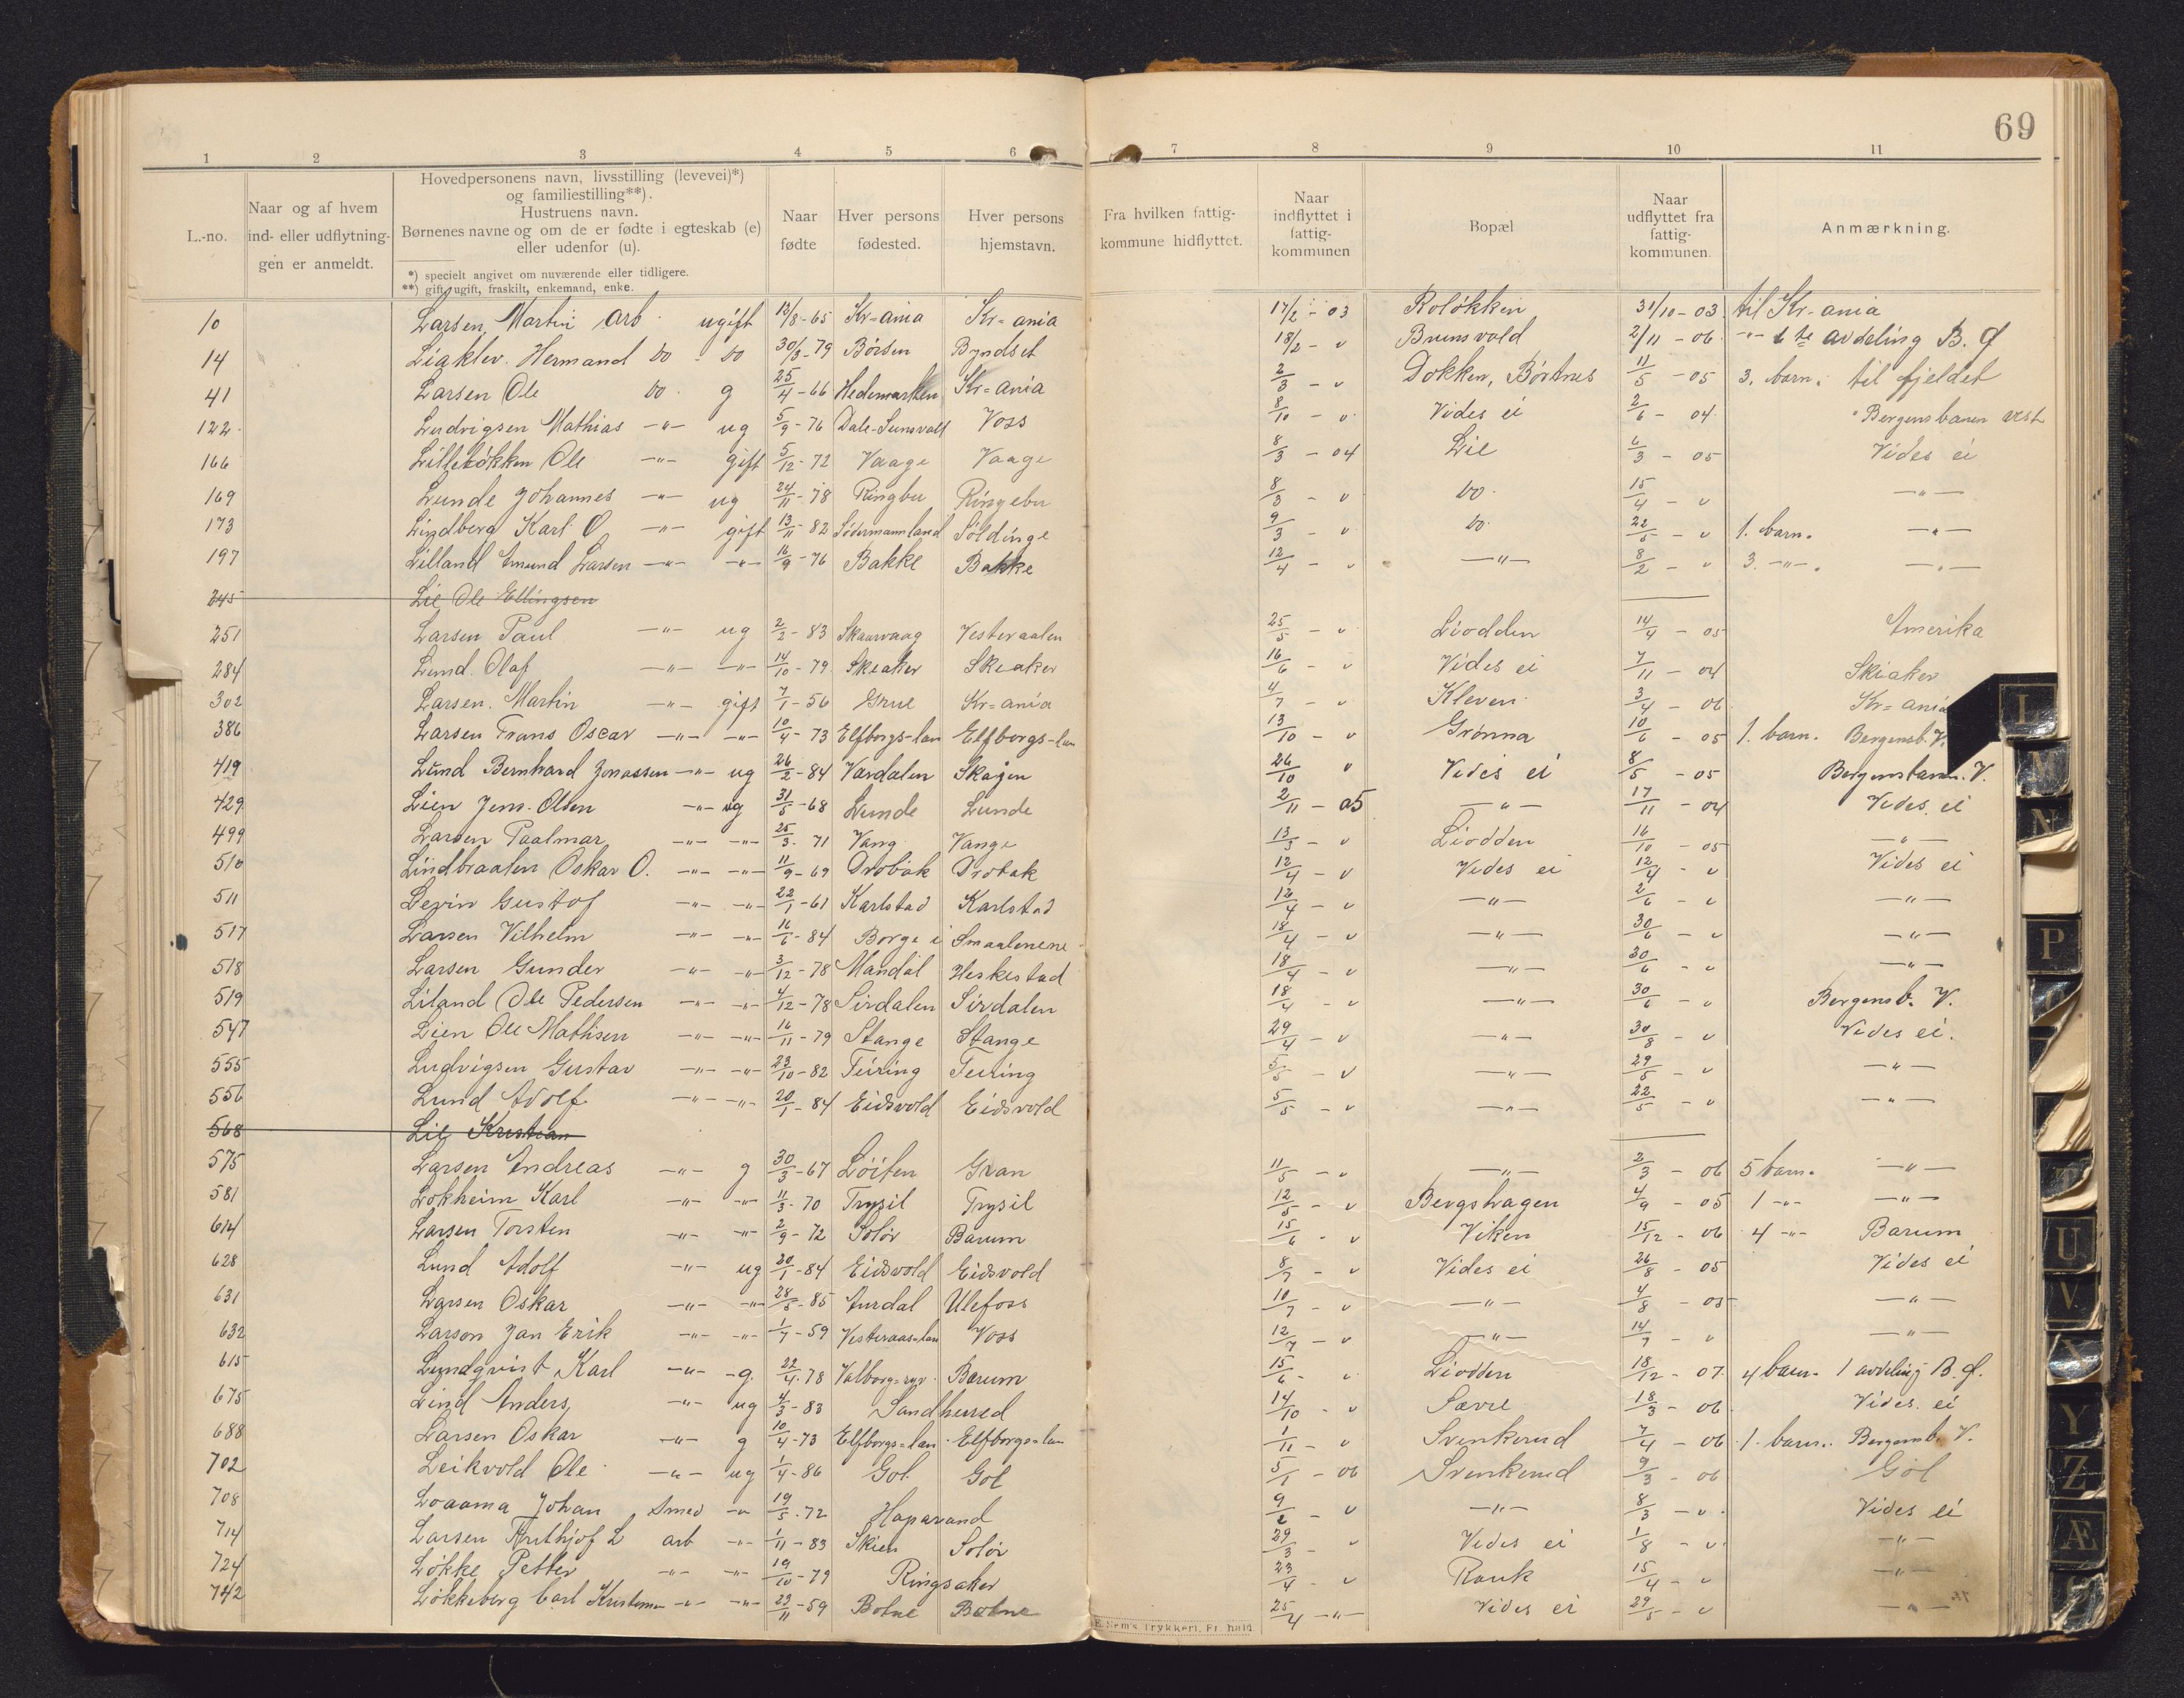 69
1 2 3 4 5 6 7 8 9 10 11
L.-no.
Naar og af hvem
ind- eller udflytning-
gen er anmeldt.
Hovedpersonens navn, livsstilling (levevei)*)
og familiestilling**).
Hustruens navn.
Børnenes navne og om de er fødte i egteskab (e)
eller udenfor (u).
*) specielt angivet om nuværende eller tidligere.
**) gift, ugift, fraskilt, enkemand, enke.
Naar
fødte
Hver persons
fødested.
Hver persons
hjemstavn.
Fra hvilken fattig-
kommune hidflyttet.
Naar
indflyttet i
fattig-
kommunen
Bopæl
Naar
udflyttet fra
fattig-
kommunen.
Anmærkning.
10 Larsen, Martin arb. ugift 13/8-65 Kr=ania Kr=ania 17/2-03 Roløkken 31/10-03 til Kr-ania
14 Liaklev. Hermand do - do 30/3-79 Børsen Byndset 18/2-v Brunsvold 2/11-06 -"- 6te avdeling B. f
41 Larsen Ole do. g 25/4-66 Hedemarken Kr=ania 2/3-v Dokken, Børtnes 11/5-05 3. barn. til fjeldet
122. Ludvigsen Mathias -"- ug 5/9-76 Dale-Sunsvall Voss 8/10-v Vides ei 2/6-04. " Bergensbanen vest
166 Lilleløkken Ole -"- gift 5/12-72 Vaage Vaage 8/3-04 Lie 6/3-05 Vides ei
169 Lunde Johannes -"- ug 24/11-78 Ringbu Ringebu 8/3-v do. 15/4-v -"-
173 Lindberg Karl O -"- gift 13/11-82 Södermannland Söldinge 9/3-v do. 22/5-v 1. barn. -"-
197 Lilland Amund Larsen -"- -"- 16/9-76 Bakke Bakke 12/4-v -"- 8/2-v 3. -"-. -"-
245 Lie Ole Ellingsen
251 Larsen Paul -"- ug 2/2-83 Skaarvaag Vesteraalen 25/5-v Liodden 14/4-05 Amerika
284 Lund. Olaf -"- -"- 14/10-79 Skeaker Skeaker 16/6-v Vides ei 7/11-04 Skiaker
302 Larsen. Martin -"- gift 7/1-56 Grue Kr=ania 4/7-v Kleven 3/4-06 Kr=ania
386 Larsen Frans Oscar -"- -"- 10/4-73 Elfborgs-lan Elfborgs-lan 13/10-v Grønna 10/6-05 1. barn. Bergensb. V.
419 Lund Bernhard Jonassen -"- ug 26/2-84 Vardalen Skagen 26/10 v Vides ei 8/5-05 Bergensbann. V.
429 Lien Jens. Olsen -"- ug 31/5-68 Lunde Lunde 2/11-05 -"- 17/11-04 Vides. ei
499 Larsen Paalmar -"- -"- 25/3-71 Vang Vange 13/3-v Liodden 16/10-05 -"-
510 Lindbraaten Oskar O. -"- -"- 11/9-69 Drøbak Drøbak 12/4-v Vides ei 12/4-v Vides ei
511 Levin Gustof -"- -"- 22/1-61 Karlstad Karlstad 12/4-v -"- 2/6-v -"-
517 Larsen Vilhelm -"- -"- 16/6-84 Borge i Smaalenene 18/4-v -"- 30/6-v -"-
518 Larsen Gunder -"- -"- 3/12-78 Mandal Heskestad 18/4-v -"- 30/6-v -"-
519 Liland Ole Pedersen -"- -"- 4/12-78 Sirdalen Sirdalen 18/4-v -"- 30/6-v Bergensb. V.
547 Lien Ole Mathisen -"- -"- 16/11-79 Stange Stange 29/4-v -"- 30/8-v Vides ei.
555 Ludvigsen Gustav -"- -"- 23/10-82 Feiring Feiring 5/5-v -"- 29/5-v -"-
556 Lund Adolf -"- -"- 20/1-84 Eidsvold Eidsvold 5/5-v -"- 22/5-v -"-
568 Lie Kristian
575 Larsen Andreas -"- g 30/3-67 Löiten Gran 11/5-v -"- 2/3-06 5 barn. -"-
581 Lokheim Karl -"- -"- 11/3-70 Trysil Trysil 12/5-v Bergshagen 4/9-05 1 -"- -"-
614 Larsen Torsten -"- -"- 2/9-72 Solør Barum 15/6-v Viken 15/12-06 4 -"- Barum
628 Lund Adolf -"- ug 20/1-84 Eidsvold Eidsvold 8/7-v Vides ei 26/8-05 Vides ei
631 Larsen Oskar -"- -"- 28/5-85 Aurdal Ulefoss 10/7-v -"- 4/8-05 -"-
632 Larson Jan Erik -"- -"- 1/7-59 Vesteraas-lan Voss 12/7-v -"- 14/7-v -"-
615 Lundqvist Karl -"- -g. 22/4-78 Barum 15/6-v Liodden 18/12-07 4 barn. 1 avdeling B. f.
675 Lind Anders, -"- ug 4/3-83 Sandherred 14/10-v Sævre 18/3-06 Vides. ei
688 Larsen Oskar -"- g 10/4-73 Elfborgs=lan Elfborgs=lan 1/11-v Svenkerud 7/4-06 1. barn. Bergensb. V.
702 Leikvold Ole -"- ug 1/4-86 Gol Gol 5/1-06 Svenkerud 9/3-06 Gol
708 Loaama Johan Smed -"- 19/5-72 Haparand 9/2-v -"- 8/3-v. Vides ei
714 Larsen Frithjof L arb -"- 1/11-83 Skien Solør 29/3-v Vides ei 1/8-v -"-
724 Løkke Petter -"- -"- 19/10-79 Ringsaker 23/4-v Rauk 15/4-v -"-
742 Løkkeberg Carl Kristensen -"- -"- 23/11-59 Botne Botne 25/4-"- Vides ei 29/5-v -"-
E. Sem's Trykkeri, Fr.hald.
L
M
N
P
T
U
V
X
Y
Z
Æ